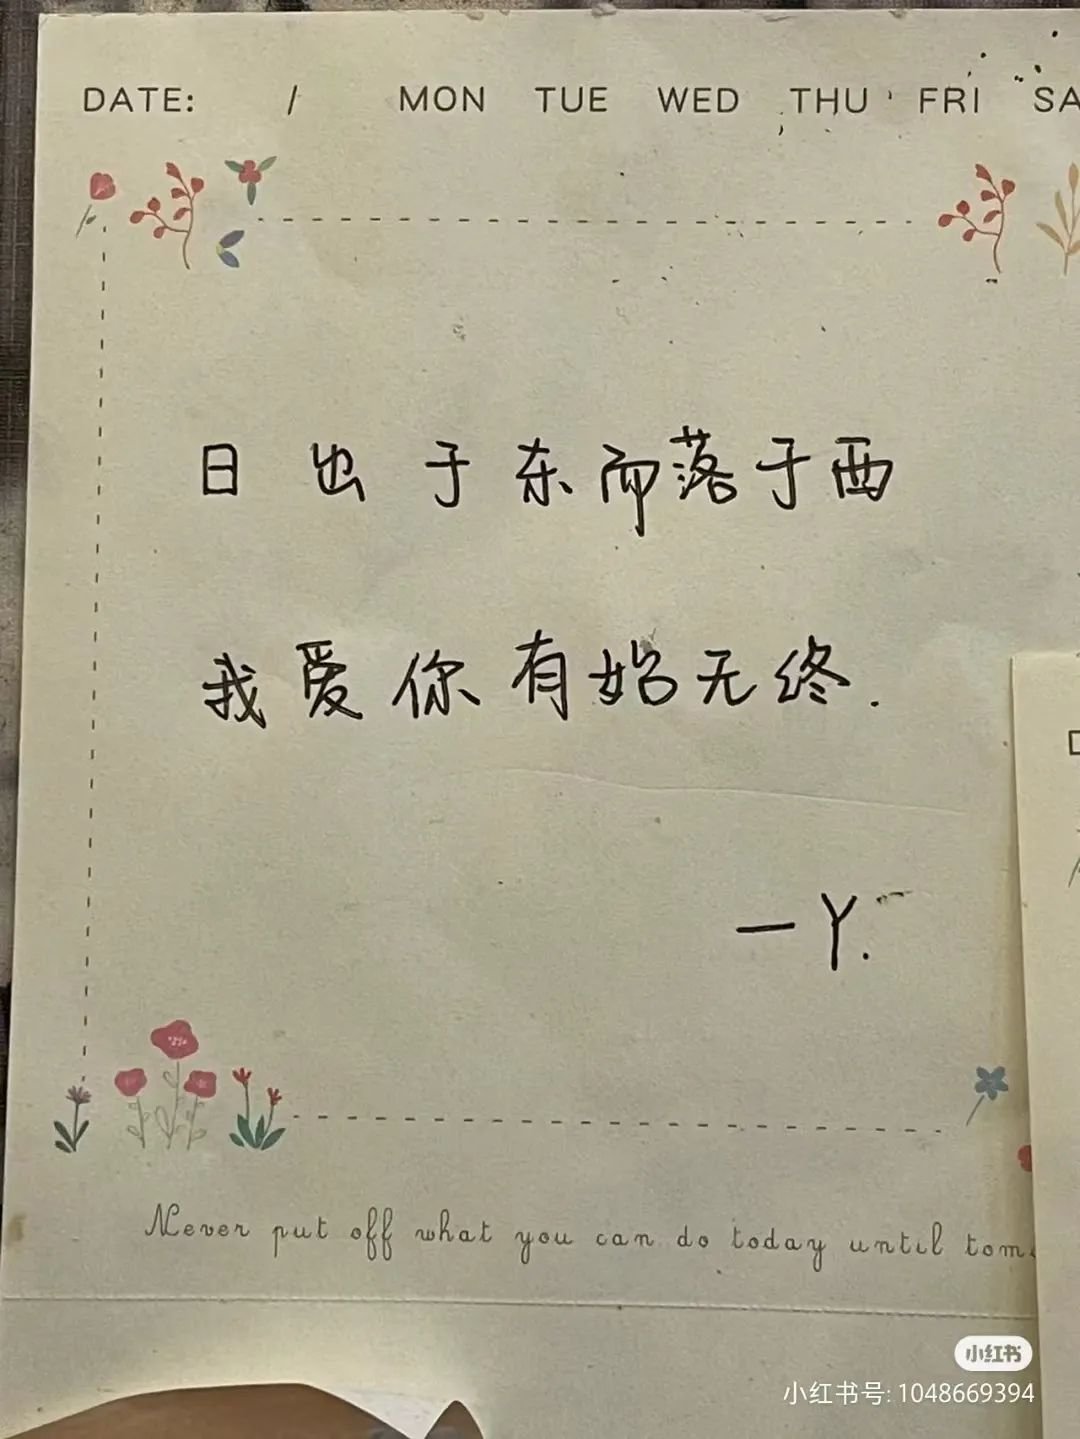 DATE: / MON TUE WED THU FRI SA
日出于东而落于西
我爱你有始无终.
一Y.
Never put off what you can do today until tom
小红书
小红书号: 1048669394